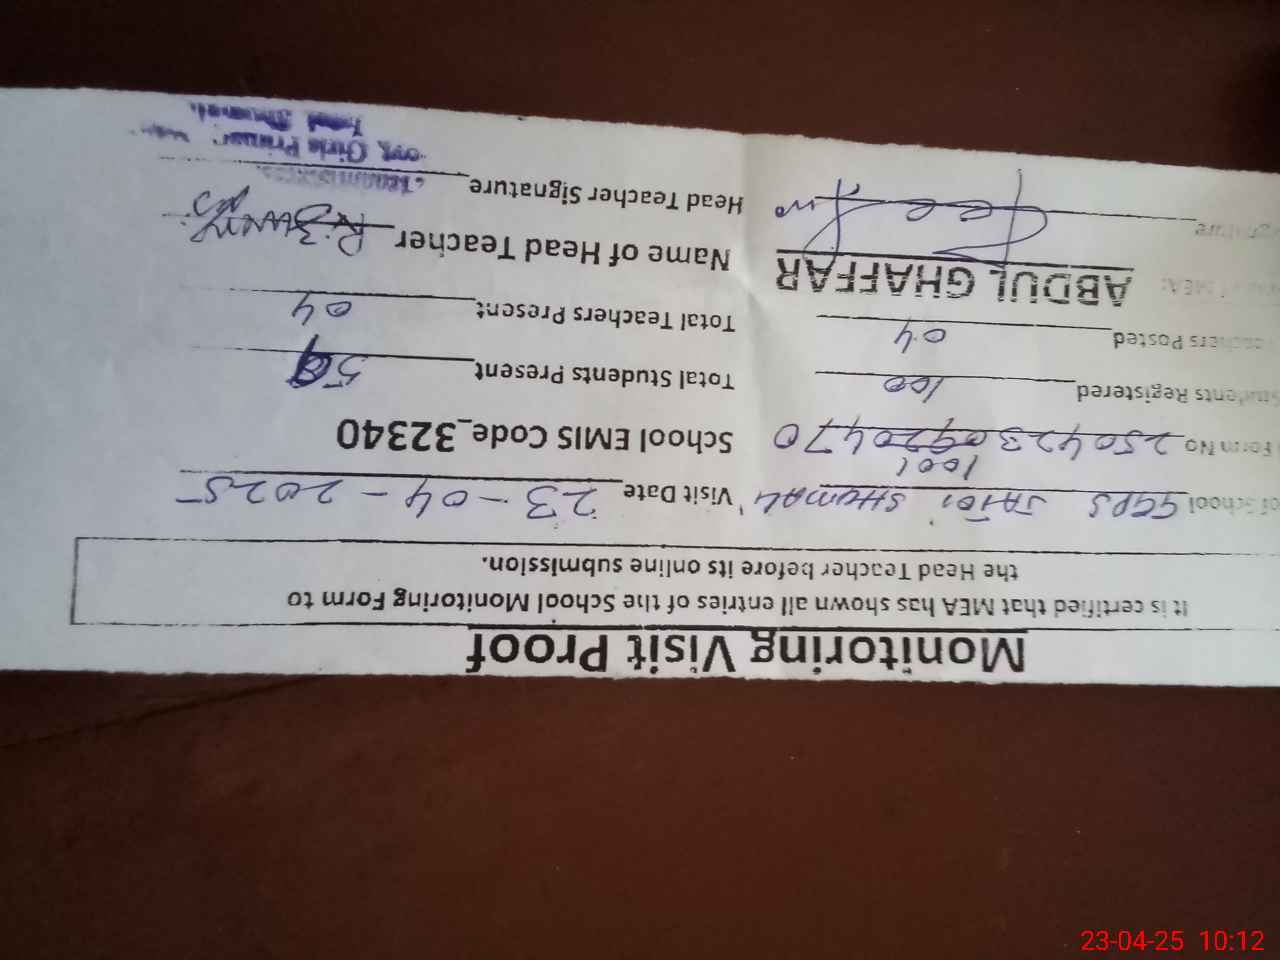 Monitoring Visit Proof
It is certified that MEA has shown all entries of the School Monitoring Form to
the Head Teacher before its online submission.
of School GGPS JATOI SHUMALI Visit Date 23-04-2025
1001
Form No 250423 0920470 School EMIS Code_32340
Students Registered 100 Total Students Present 59
Teachers Posted 04 Total Teachers Present 04
MEA: ABDUL GHAFFAR Name of Head Teacher
Signature Head Teacher Signature
Girls Primary
23-04-25 10:12